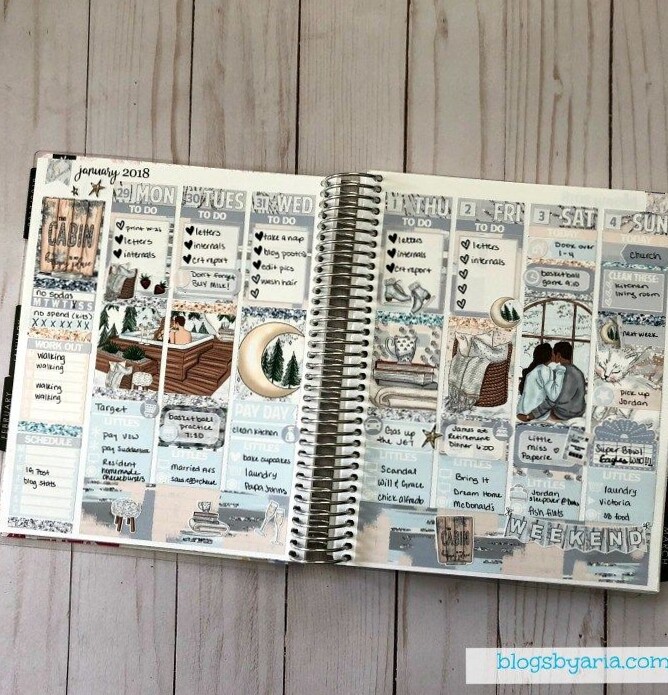 january 2018
THE
CABIN
no sodas
M T W T X S S
no spend (kits)
X X X X X X X
WORK OUT
walking
walking
walking
walking
SCHEDULE
IG Post
blog stats
FEBRUARY
29 MON
TO DO
letters
internals
Target
LITTLES
pay VSW
Resident
homemade
30 TUES
TO DO
letters
internals
crt report
Don't forget
BUY MILK!
basketball
practice
7:30
LITTLES
Married Mrs
31 WED
TO DO
take a nap
blog posts
edit pics
wash hair
PAY DAY
clean kitchen
LITTLES
bake cupcakes
laundry
Papa Johns
1 THU
TO DO
letters
internals
crt report
Gas up
the Jet
LITTLES
Scandal
Will & Grace
chick alfredo
2 FRI
TO DO
letters
internals
James
Retirement
Dinner 6:00
LITTLES
Bring It
Dream Home
McDonald's
3 SAT
TO DO
Door over
1-4
basketball
game 9:10
Little
Miss
Paperie
LITTLES
Jordan
fish filets
4 SUN
TODAY
church
CLEAN THESE
kitchen
living room
next week
pick up
Jordan
Super Bowl
Eagles
LITTLES
laundry
Victoria
SB food
CABIN
WEEKEND
blogsbyaria.com